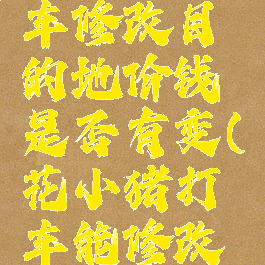 车修改目
的地价钱
是否有变(
花小猪打
车能修改